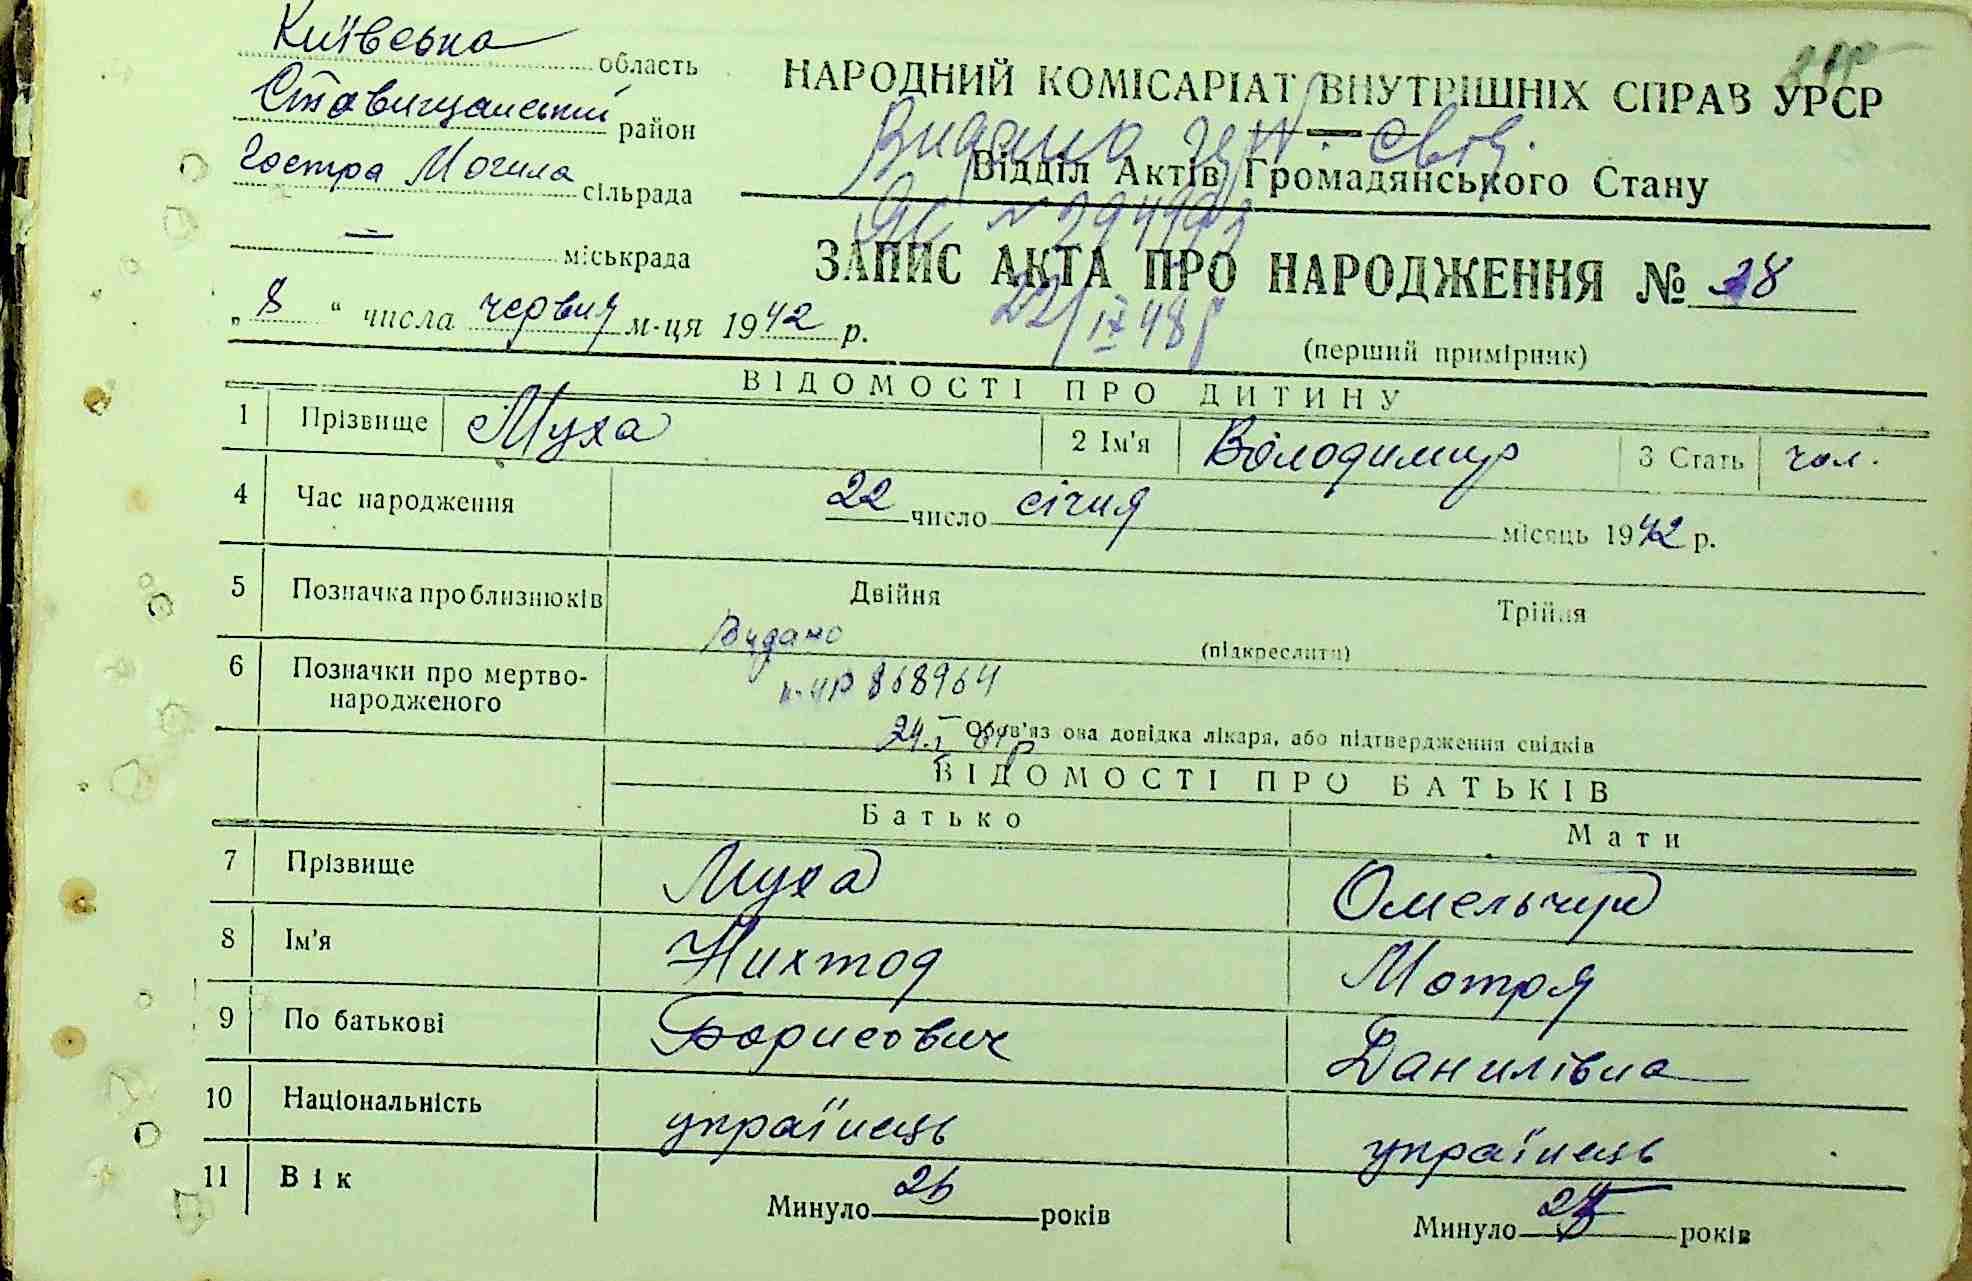 Київська область
Ставищанський район
Гостра Могила сільрада
— міськрада
„8“ числа червня м-ця 1942 р.
НАРОДНИЙ КОМІСАРІАТ ВНУТРІШНІХ СПРАВ УРСР
Видано
Відділ Актів Громадянського Стану
ЗАПИС АКТА ПРО НАРОДЖЕННЯ № 28
22/IX 48р
(перший примірник)
ВІДОМОСТІ ПРО ДИТИНУ
1 Прізвище Муха 2 Ім'я Володимир 3 Стать чол.
4 Час народження 22 число січня місяць 1942 р.
5 Позначка про близнюків Двійня Трійня
(підкреслити)
Видано
6 Позначки про мертво-
народженого
868964
Обов'язкова довідка лікаря, або підтвердження свідків
ВІДОМОСТІ ПРО БАТЬКІВ
Батько Мати
7 Прізвище Муха Омельчук
8 Ім'я Нихтод Мотря
9 По батькові Борисович Данилівна
10 Національність українець українець
11 Вік Минуло 26 років Минуло років